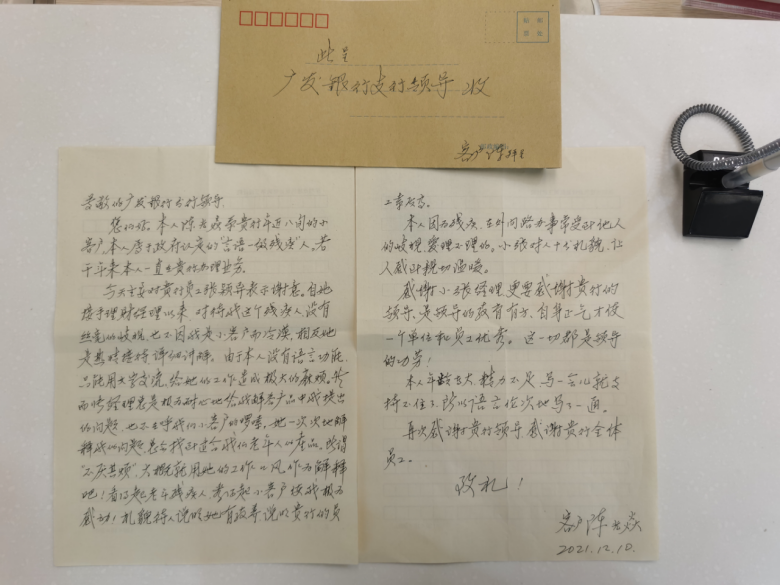 此呈
广发银行支行领导 收
客户 陈
尊敬的广发银行支行领导
您们好。本人陈 系贵行年近八旬的小
客户,本人属于政府认定的"言语一级残疾"人。若
干年来本人一直在贵行办理业务。
今天主要对贵行员工张 领导表示谢意。自她
接手理财经理以来 对待我这个残疾人没有
丝毫的歧视 也不因我是小客户而冷漠,相反她
是热情接待 详细讲解。由于本人没有语言功能,
只能用文字交流,给她的工作造成极大的麻烦。然
而 经理总是极为耐心地给我解答产品中我提出
的问题,也不 我们小客户的啰嗦,她一次次地解
释我的问题,总会找出适合我们老年人的产品。所谓
"不厌其烦"大概就用她的工作作风 作为解释
吧!看得起老年残疾人 看得起小客户使我极为
感动!礼貌待人说明她有教养 说明贵行的员
工素质高。
本人因为残疾,在外间路办事常受到他人
的歧视 爱理不理的。小张对人十分礼貌,让
人感到亲切温暖。
感谢小张经理 更要感谢贵行的
领导,是领导的教育有方,自身正气才使
一个单位和员工优秀。这一切都是领导
的功劳!
本人年龄老大 精力不足 写一会儿就支
持不住了 所以语言伦次地写了一通。
再次感谢贵行领导,感谢贵行全体
员工。
致礼!
客户 陈
2021.12.10.